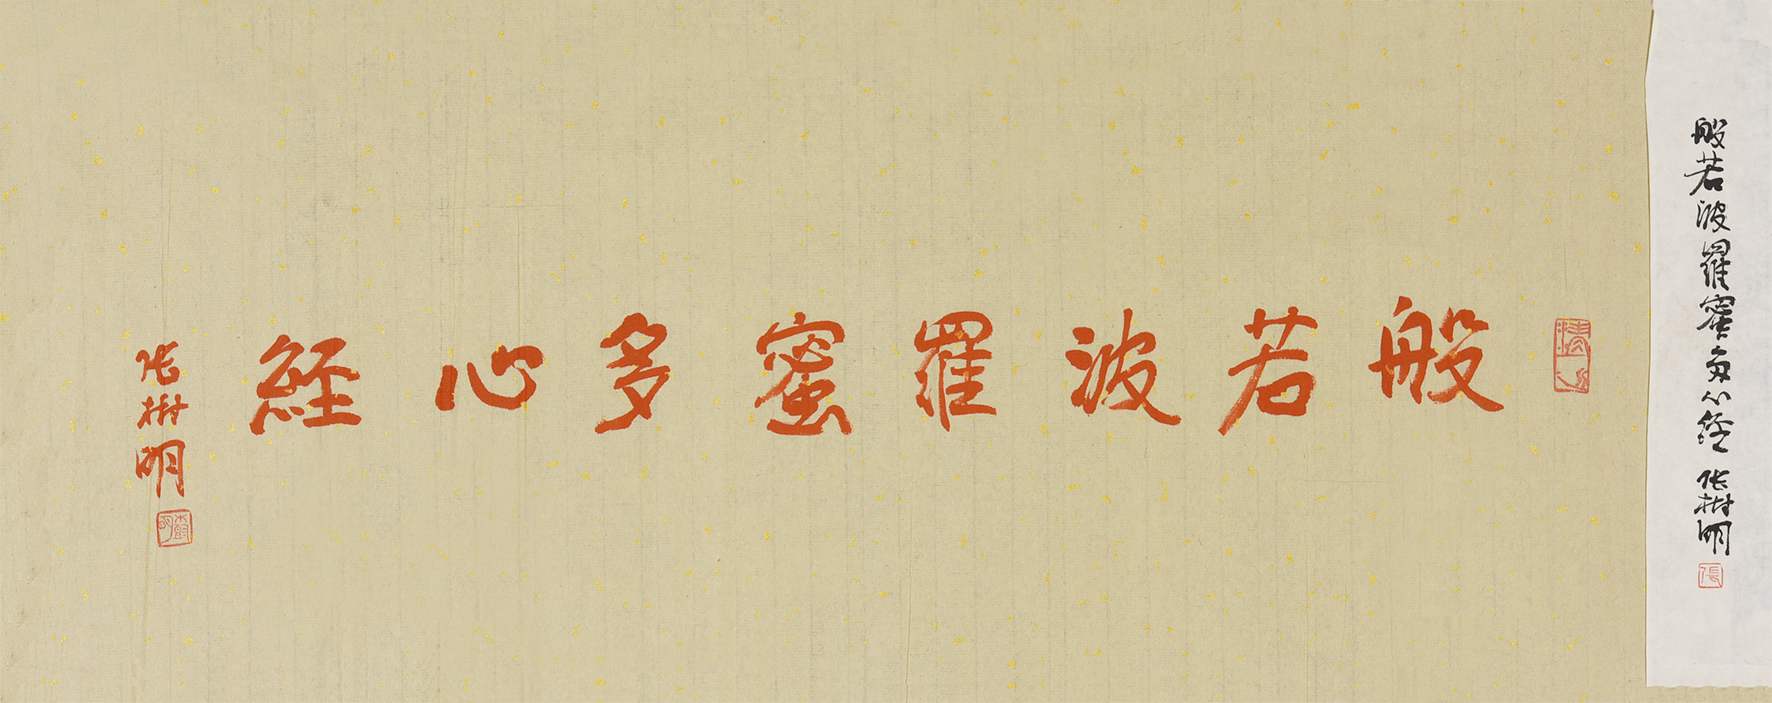 般若波羅蜜多心經 張樹明
張
般若波羅蜜多心經
張樹明
樹明